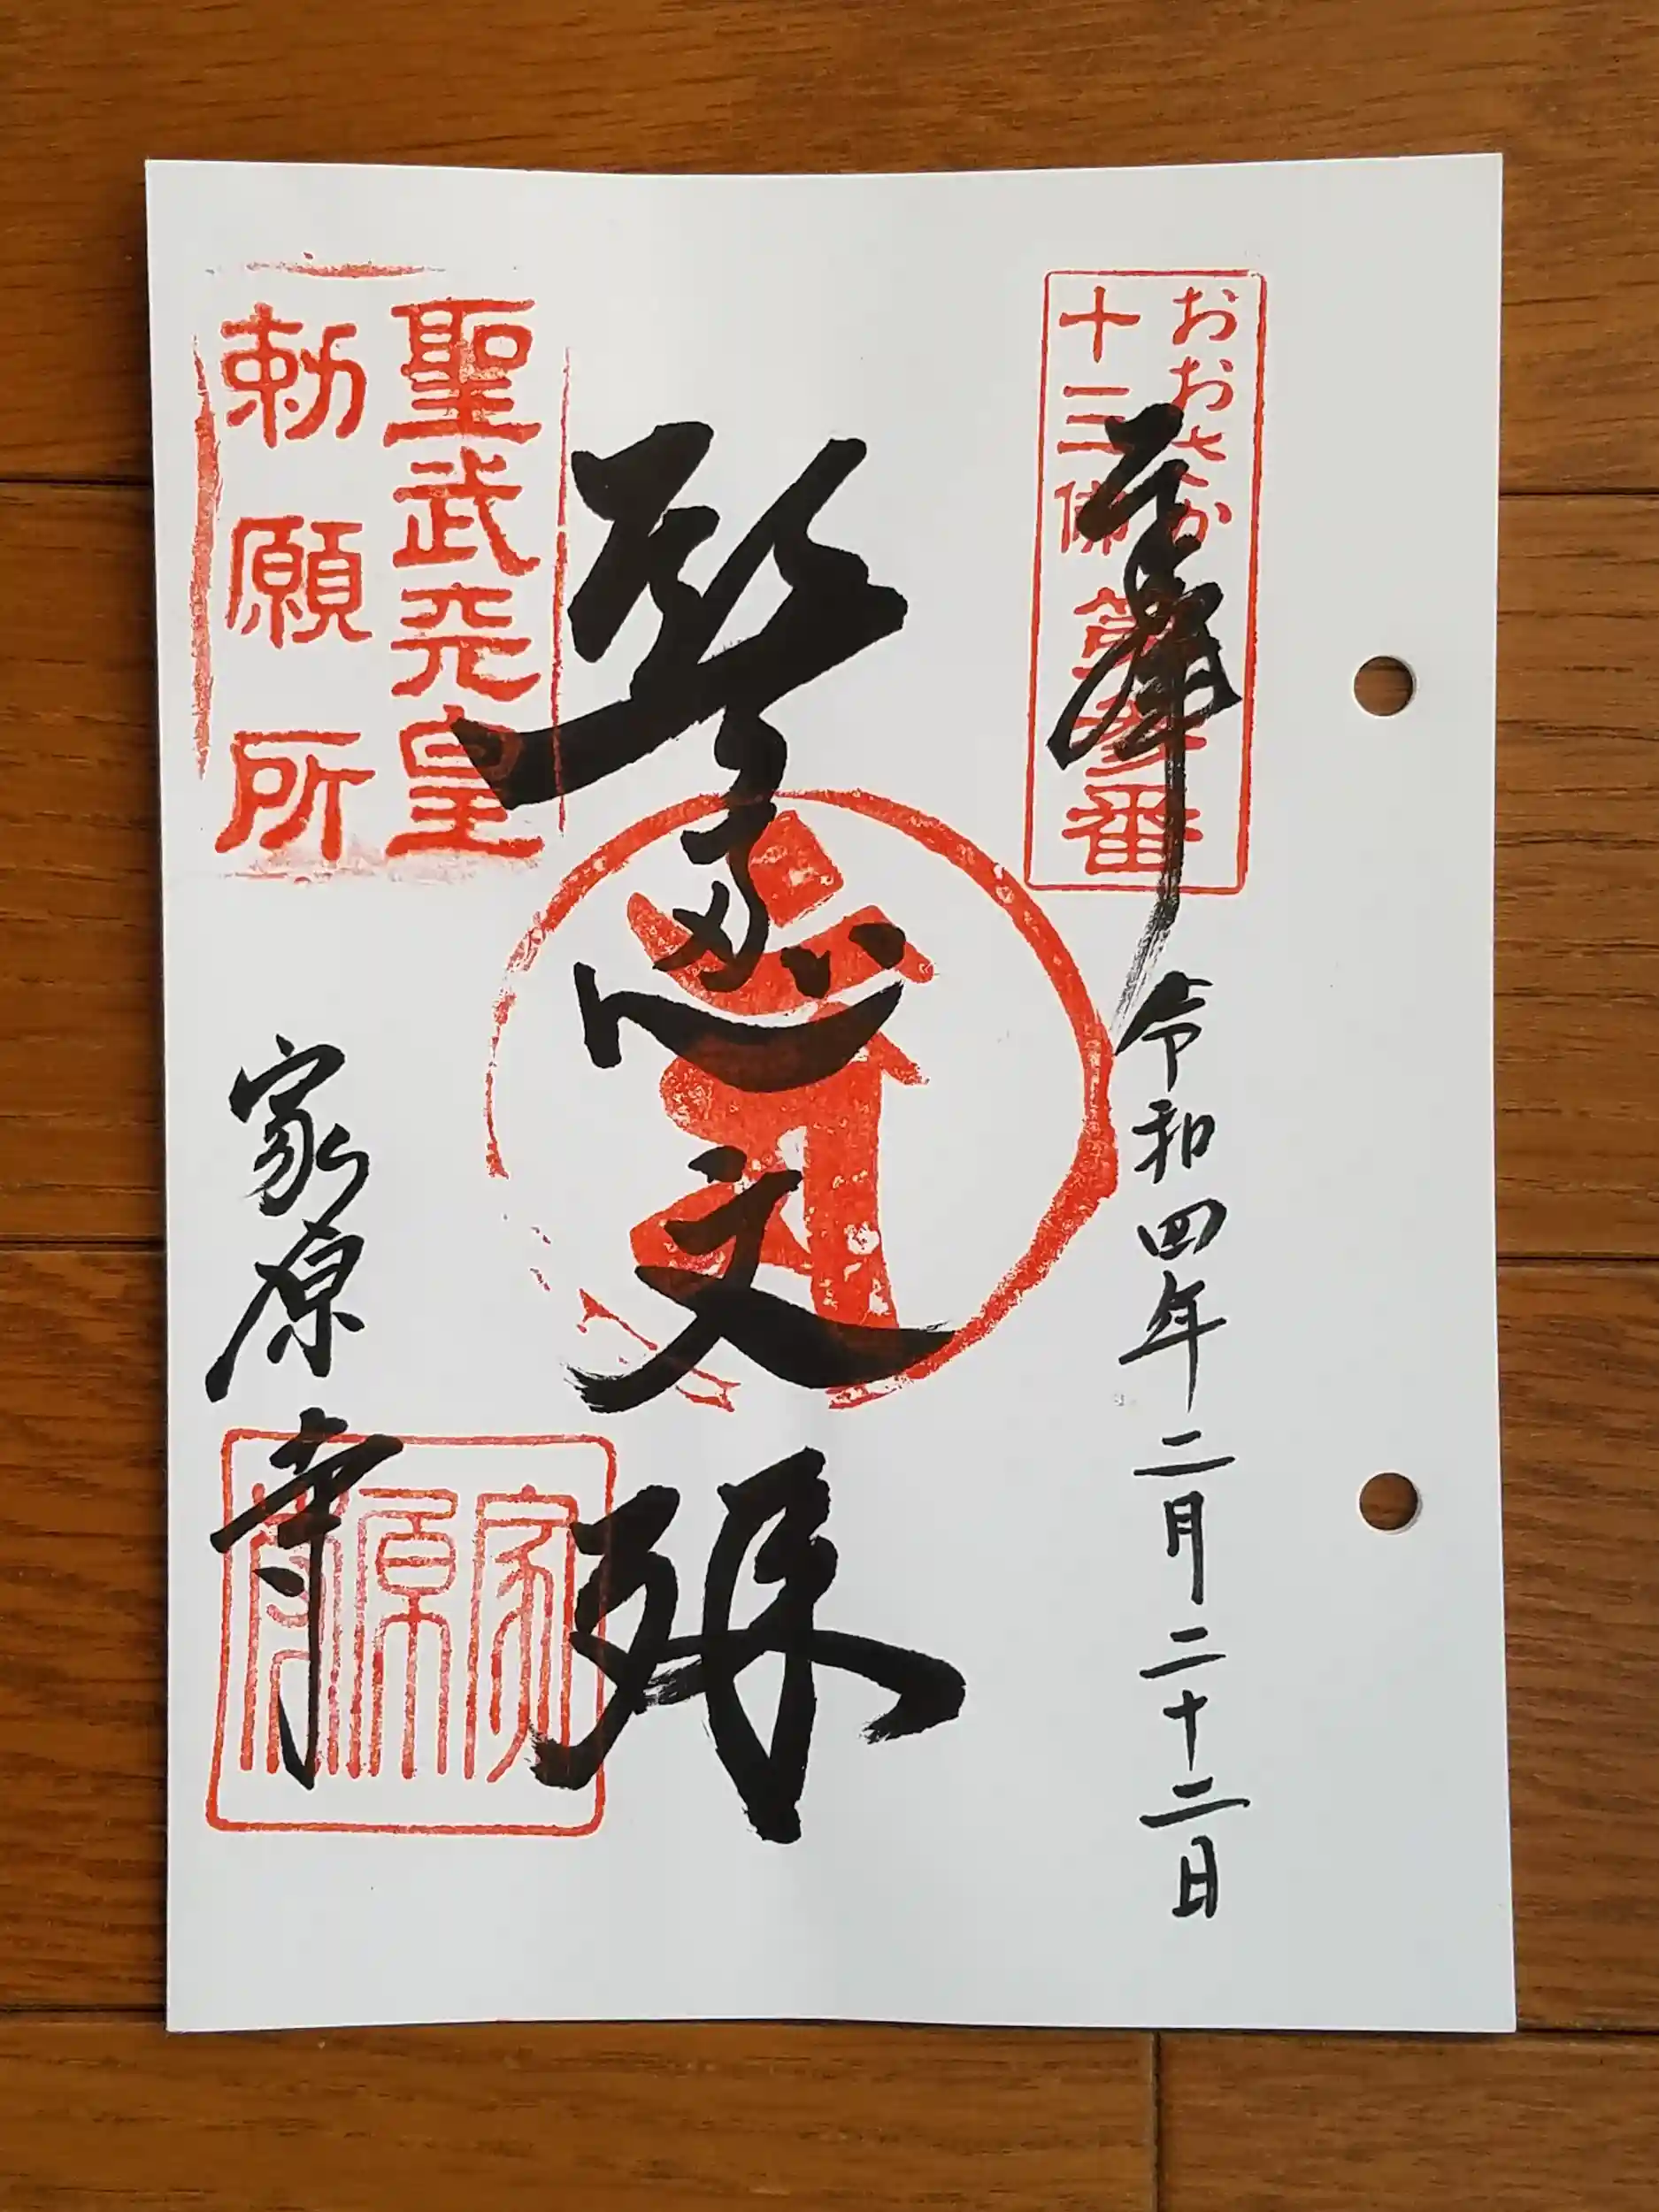 おおさか
十三佛 第参番
奉拝
令和四年二月二十二日
智恵文殊
聖武天皇
勅願所
家原寺
家原寺